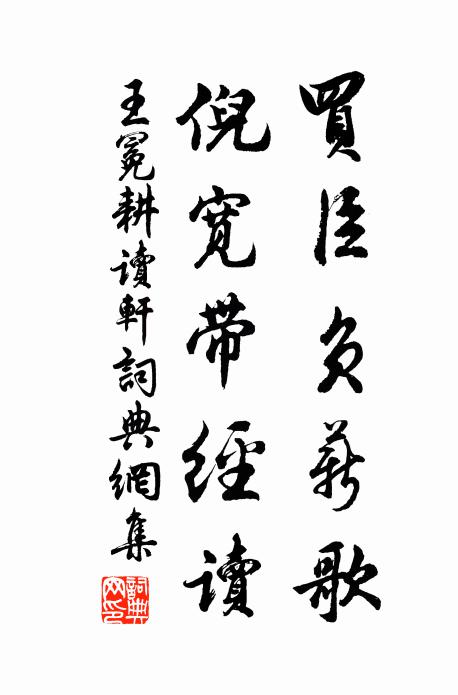 買臣負薪歌
倪寬帶經讀
王冕耕讀軒詞典網集
詞典网印